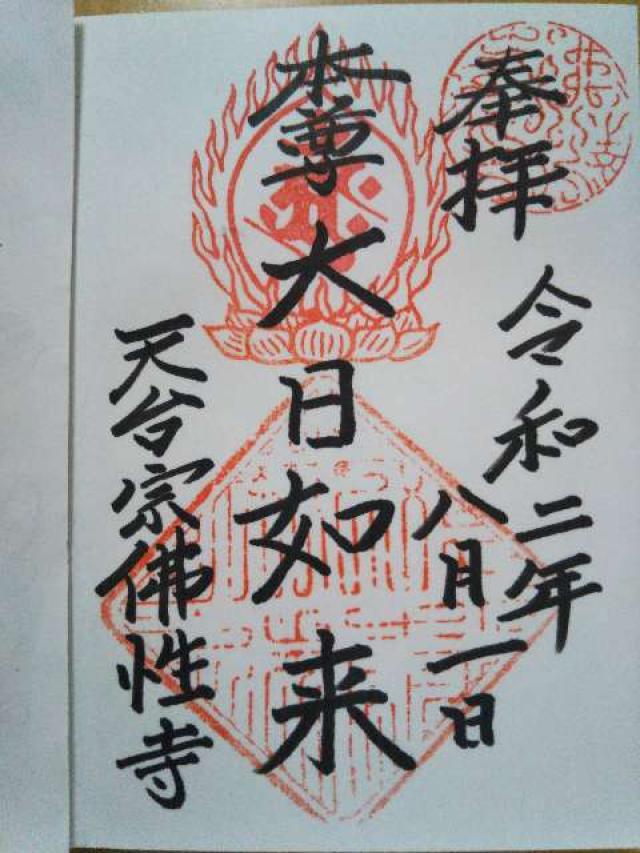 奉拝
令和二年
八月一日
本尊大日如来
天台宗佛性寺